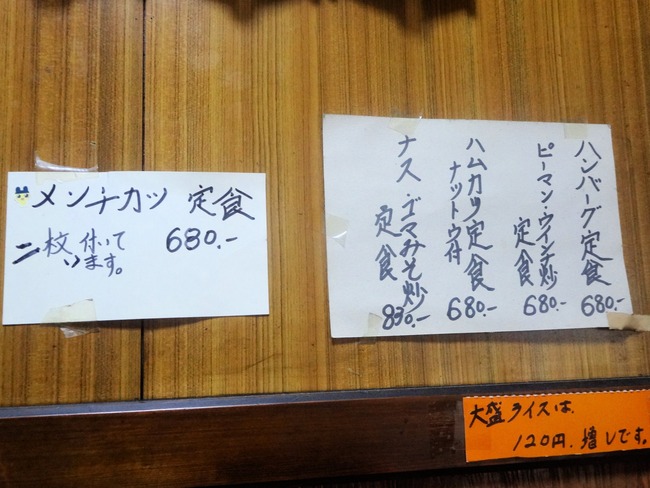 メンチカツ 定食
二枚 付いて
います。
680.-
ハンバーグ定食 680.-
ピーマン・ウインナ炒
定食 680.-
ハムカツ定食 680.-
ナットウ付
ナス・ゴマみそ炒
定食 830.-
大盛ライスは、
120円.増しです。